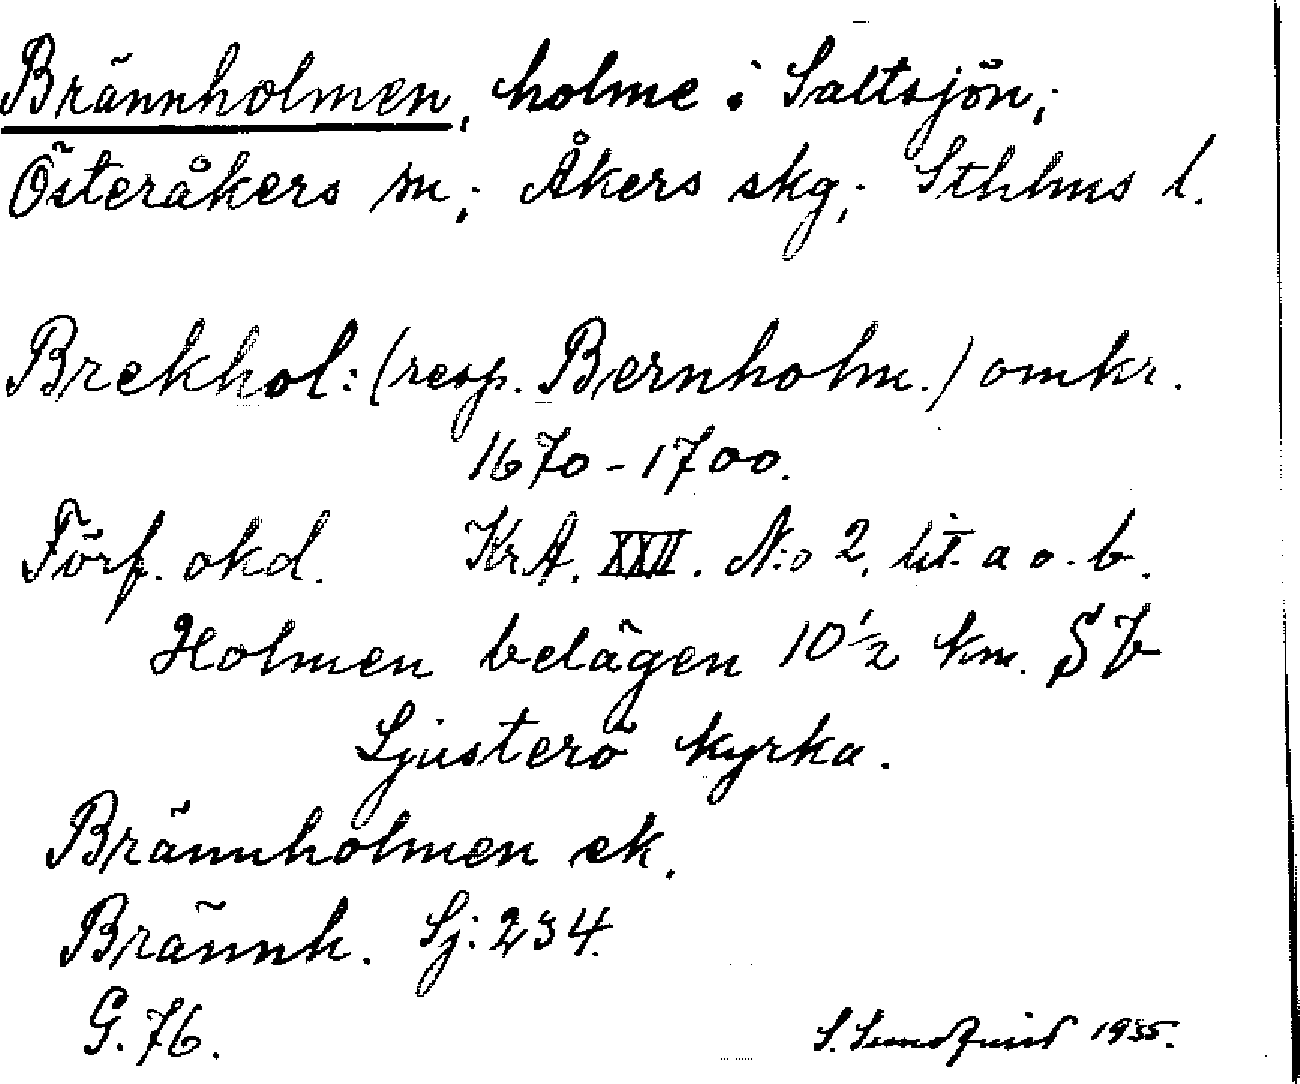 Brännholmen, holme i Saltsjön;
Österåkers sn; Åkers skg; Sthlms l.
Brekhol: (resp. Bernholm.) omkr.
1670-1700.
Förf. okd. KrA. XXII. N:o 2, lit. a o. b.
Holmen belägen 10 1/2 km. S
Ljusterö kyrka.
Brännholmen ek.
Brännh. Sj: 234.
G. 76.
S. 1935.